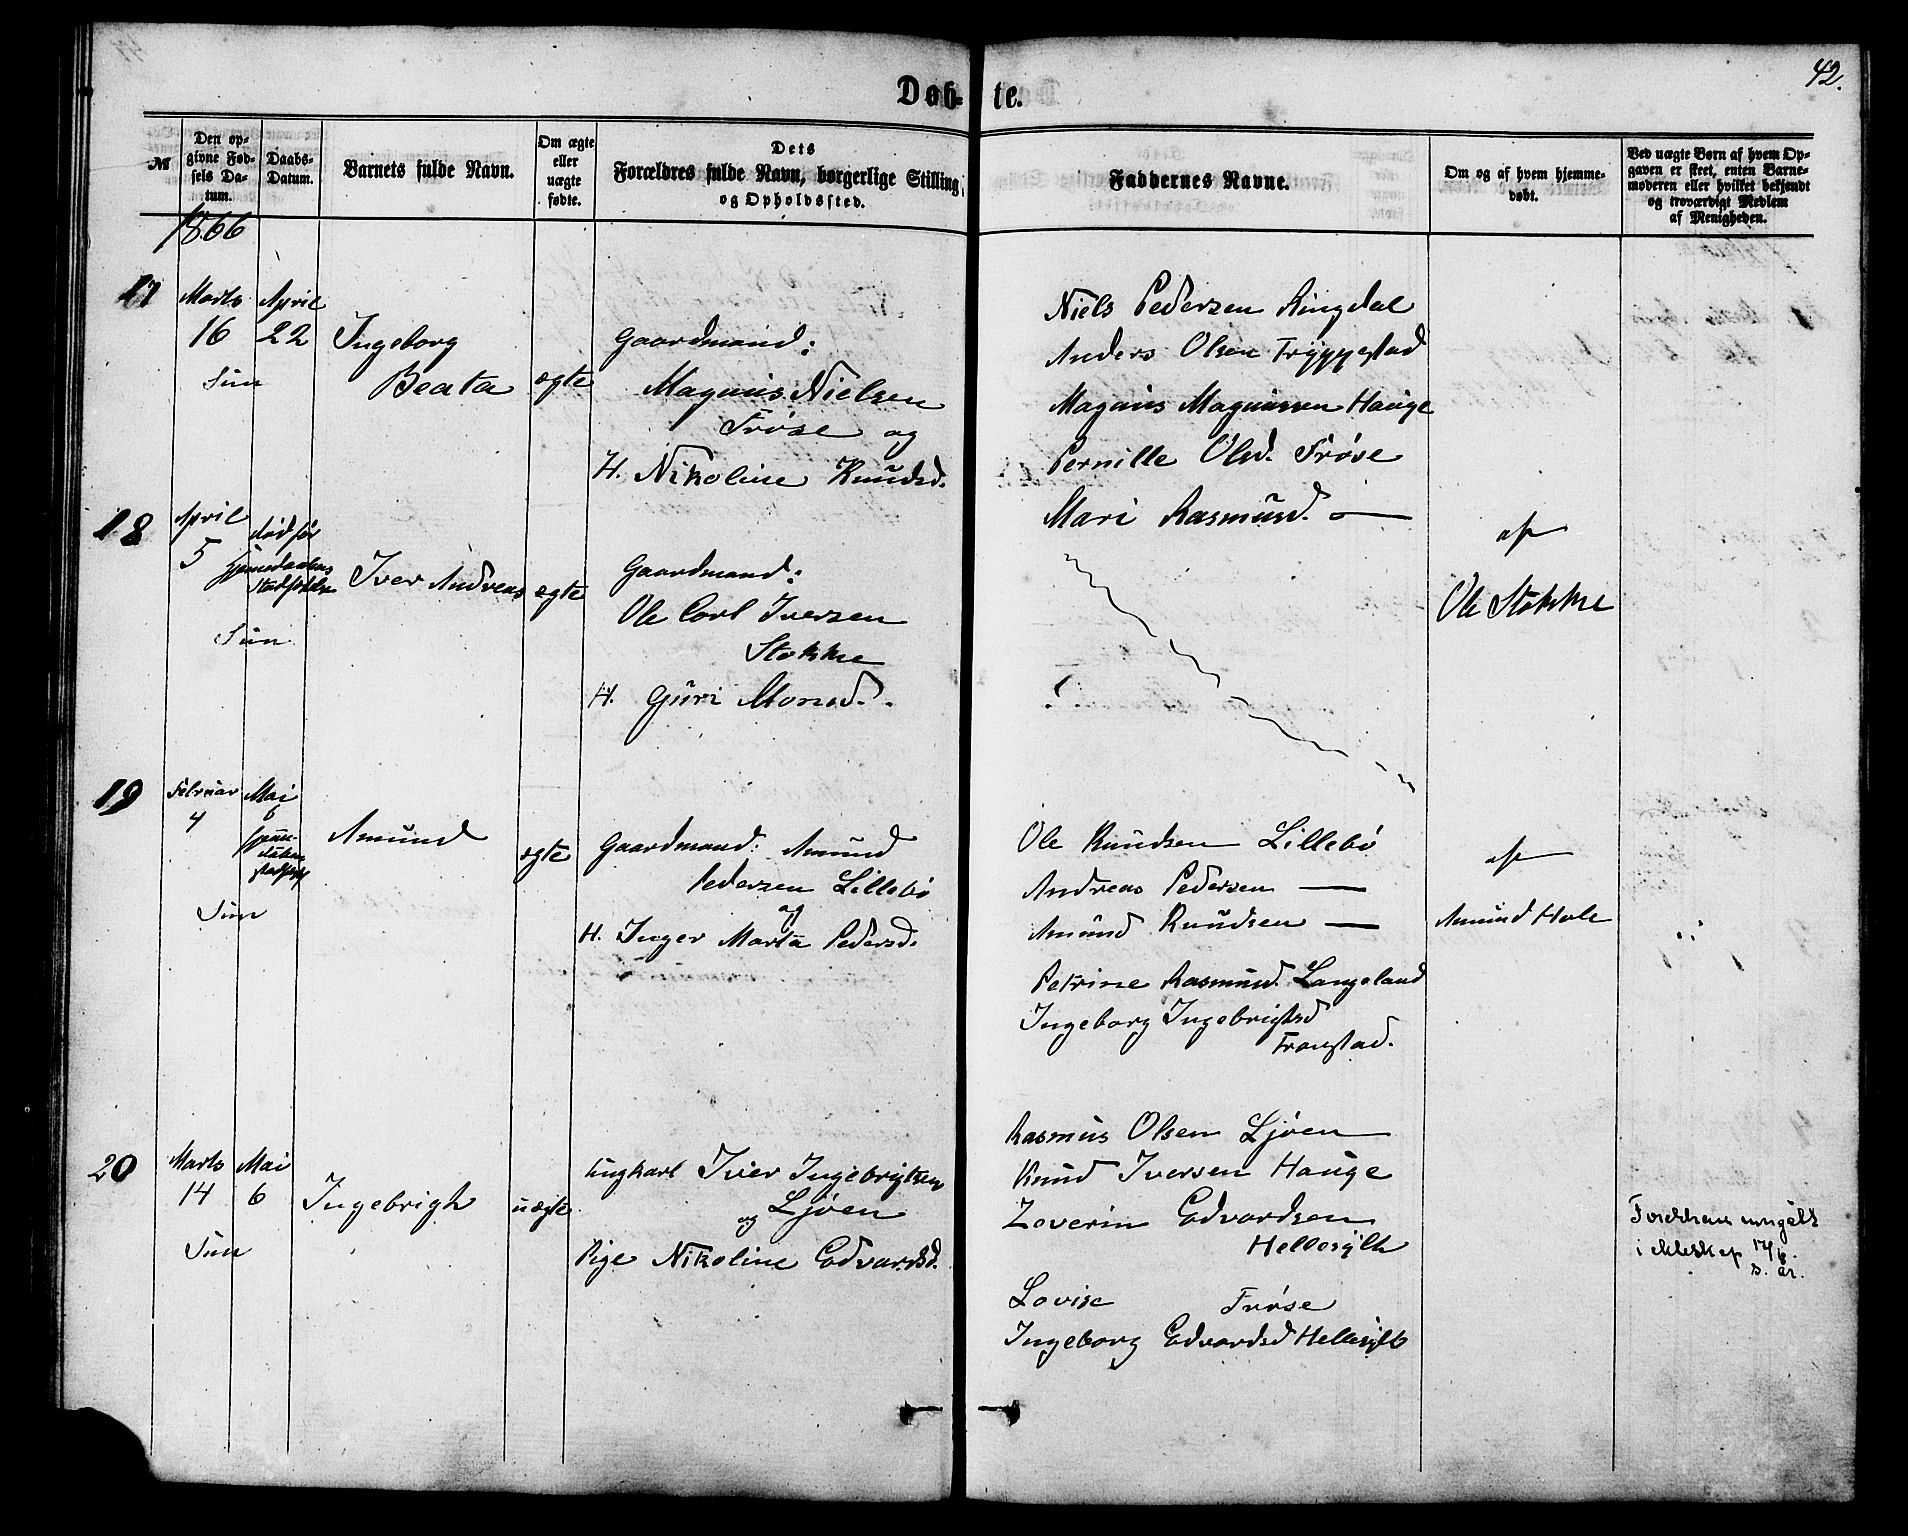 42.
Døb- te.
№
Den op-
givne Fød-
sels Da-
tum.
Daabs-
Datum.
Barnets fulde Navn.
Om ægte
eller
uægte
fødte.
Dets
Forældres fulde Navn, borgerlige Stilling
og Opholdssted.
Faddernes Navne.
Om og af hvem hjemme-
døbt.
Ved uægte Børn af hvem Op-
gaven er skeet, enten Barne-
moderen eller hvilket bekjendt
og troværdigt Medlem
af Menigheden.
1866
17
Marts
16
April
22
Sun
Ingeborg
Beata
ægte
Gaardmand:
Magnus Nielsen
Frøse og
H. Nikoline Knudsd.
Niels Pedersen Ringdal
Anders Olsen Tryggestad
Magnus Magnussen Hauge
Pernille Olsd. Frøse
Mari Rasmusd. —
18
April
5
død før
Sun
Iver Andreas
ægte
Gaardmand:
Ole Carl Iversen
Stokke
H. Guri Monsd.
af
Ole Stokke
19
Februar
4
Mai
6
Sun
Amund
ægte
Gaardmand: Amund
Pedersen Lillebø
og
H. Inger Marta Pedersd.
Ole Knudsen Lillebø
Andreas Pedersen —
Amund Knudsen —
Petrine Rasmusd. Langeland
Ingeborg Ingebrigtsd
Tronstad.
af
Amund Hole
20
Marts
14
Mai
6
Sun
Ingebrigt
uægte
Ungkarl Iver Ingebrigtsen
og Ljøen
Pige Nikoline Edvardsd.
Rasmus Olsen Ljøen
Knud Iversen Hauge
Zeverin Edvardsen
Hellesylt
Lovise Frøse
Ingeborg Edvardsd Hellesylt
i ekteskap 17/6
s. år.